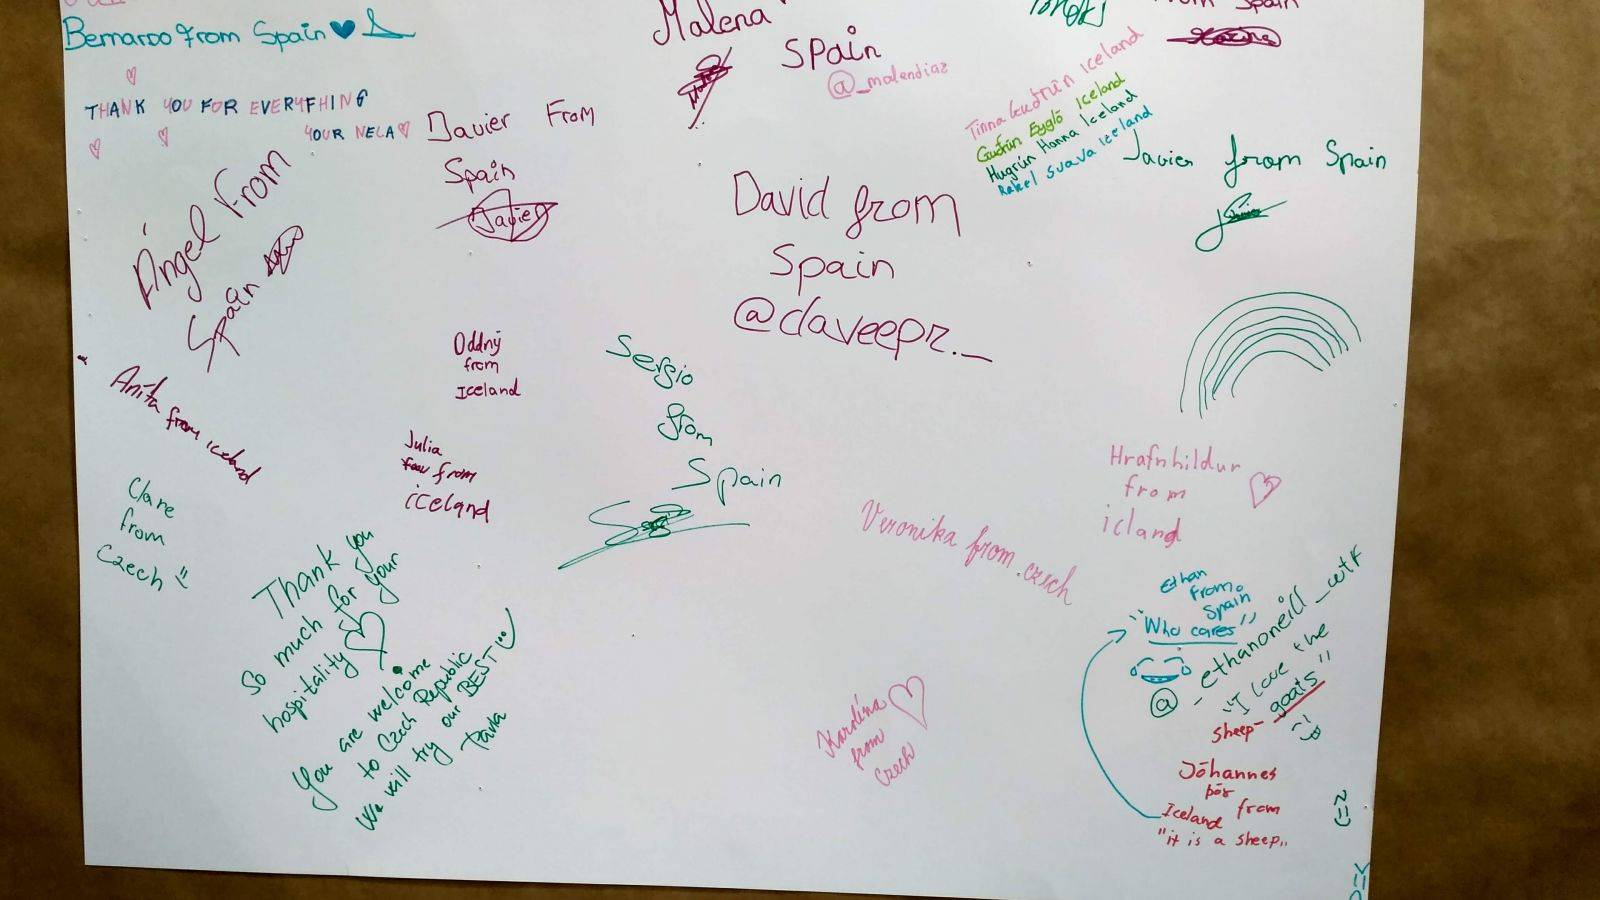 Bernardo from Spain
THANK YOU FOR EVERYTHING
YOUR NELA
Malena
SPain
@_malendiaz
from Spain
Javier From
Spain
Javier
Ángel From
Spain
David from
Spain
@daveepr._
Tinna Guðrún Iceland
Guðrún Eygló Iceland
Hugrún Hanna Iceland
Rakel Svava Iceland
Javier from Spain
Oddný
from
Iceland
Sergio
from
Spain
Aníta from iceland
Julia
from
iceland
Clare
from
Czech
Thank you
so much for your
hospitality
You are welcome
to Czech Republic
We will try our BEST
Pavla
Veronika from czech
Karolína
from
Czech
Hrafnhildur
from
icland
Ethan
from
Spain
"Who cares"
@_ethanoneill_wtf
"I love the
goats"
sheep-
Jóhannes
þór
Iceland from
"it is a sheep"